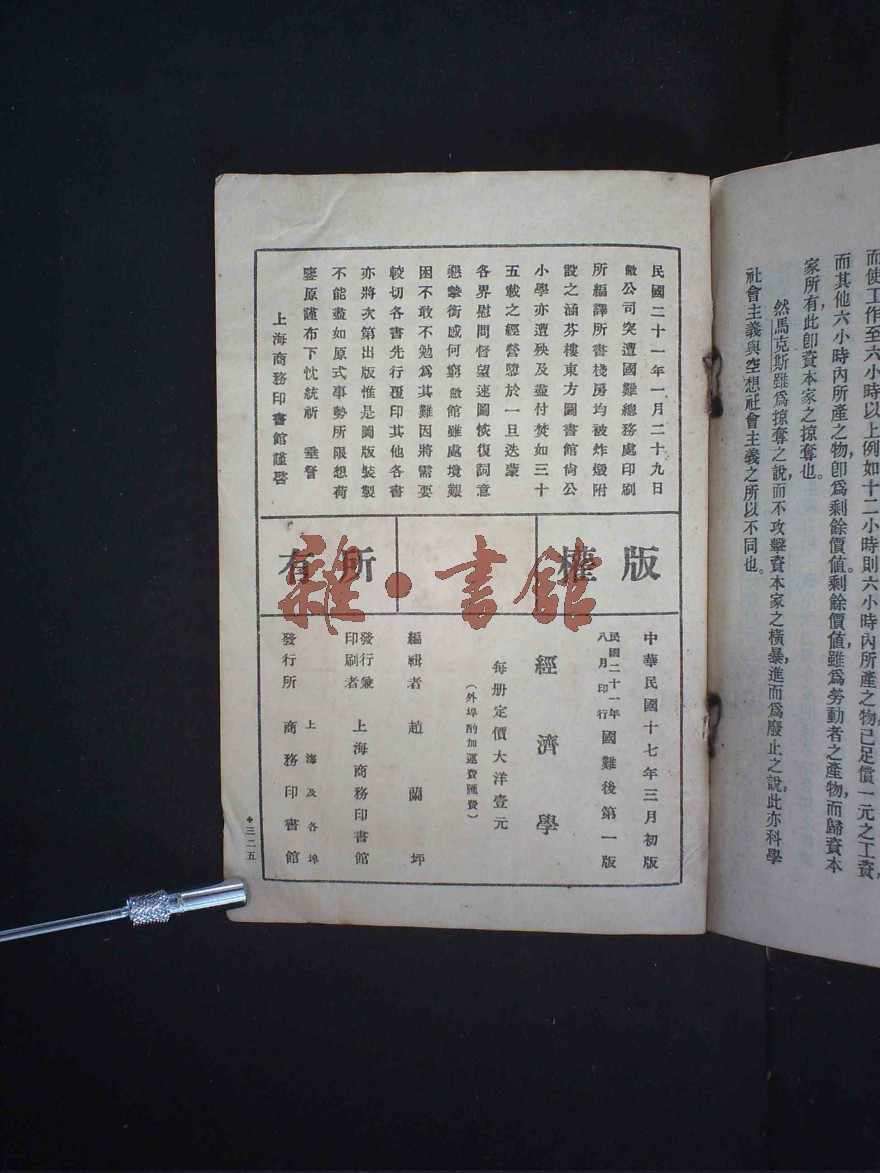 而使工作至六小時以上例如十二小時則六小時內所產之物已足償一元之工資，
而其他六小時內所產之物，卽爲剩餘價值。剩餘價值，雖爲勞動者之產物，而歸資本
家所有，此卽資本家之掠奪也。
然馬克斯雖爲掠奪之說，而不攻擊資本家之橫暴，進而爲廢止之說，此亦科學
社會主義與空想社會主義之所以不同也。
民國二十一年一月二十九日
敝公司突遭國難總務處印刷
所編譯所書棧房均被炸燬附
設之涵芬樓東方圖書館尙公
小學亦遭殃及盡付焚如三十
五載之經營隳於一旦迭蒙
各界慰問督望速圖恢復詞意
懇摯銜感何窮敝館雖處境艱
困不敢不勉爲其難因將需要
較切各書先行覆印其他各書
亦將次第出版惟是圖版裝製
不能盡如原式事勢所限想荷
鑒原謹布下忱統祈 垂詧
上海商務印書館謹啓
版權所有
雜·書館
中華民國十七年三月初版
民國二十一年八月印行 國難後第一版
經濟學
每册定價大洋壹元
（外埠酌加運費匯費）
編輯者 趙蘭坪
發行兼印刷者 上海商務印書館
發行所 上海及各埠 商務印書館
三二五